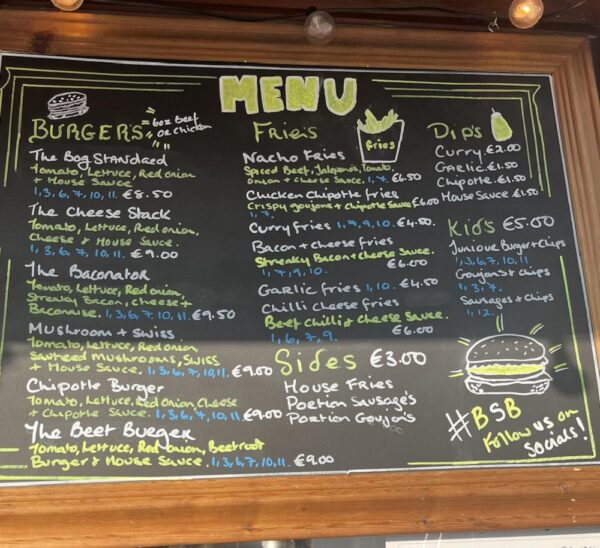 MENU
BURGER'S
6oz Beef
or Chicken
The Bog STANDARD
Tomato, Lettuce, Red onion
+ House Sauce
1, 3, 6, 7, 10, 11. €8.50
The Cheese Stack
Tomato, Lettuce, Red onion,
Cheese & House Sauce.
1, 3, 6, 7, 10, 11. €9.00
The Baconator
Tomato, Lettuce, Red onion,
Streaky Bacon, cheese +
Baconaise. 1, 3, 6, 7, 10, 11. €9.50
Mushroom + Swiss
Tomato, Lettuce, Red onion
Sauteed mushrooms, Swiss
+ House Sauce. 1, 3, 6, 7, 10, 11. €9.00
Chipotle Burger
Tomato, Lettuce, Red onion, Cheese
+ Chipotle Sauce. 1, 3, 6, 7, 10, 11. €9.00
The Beet Burger
Tomato, Lettuce, Red Onion, Beetroot
Burger & House Sauce. 1, 3, 6, 7, 10, 11. €9.00
Frie's
fries
Nacho Fries
Spiced Beef, Jalapenos, Tomato,
Onion + Cheese Sauce. 1, 7. €6.50
Chicken Chipotle fries
Crispy goujons + chipotle Sauce €6.00
1, 7.
Curry fries 1, 7, 9, 10. €4.50
Bacon + cheese fries
Streaky Bacon + cheese Sauce.
1, 7, 9, 10. €6.00
Garlic fries 1, 10. €4.50
Chilli Cheese fries
Beef Chilli + Cheese Sauce.
1, 6, 7, 9. €6.00
Sides €3.00
House Fries
Portion Sausage's
Portion Goujon's
Dip's
Curry. €2.00
Garlic. €1.50
Chipotle. €1.50
House Sauce €1.50
Kid's €5.00
Juniour Burger + Chips
1, 3, 6, 7, 10, 11
Goujon's & Chips
1, 3, 7.
Sausages & Chips
1, 12.
#BSB
Follow us on
Socials!